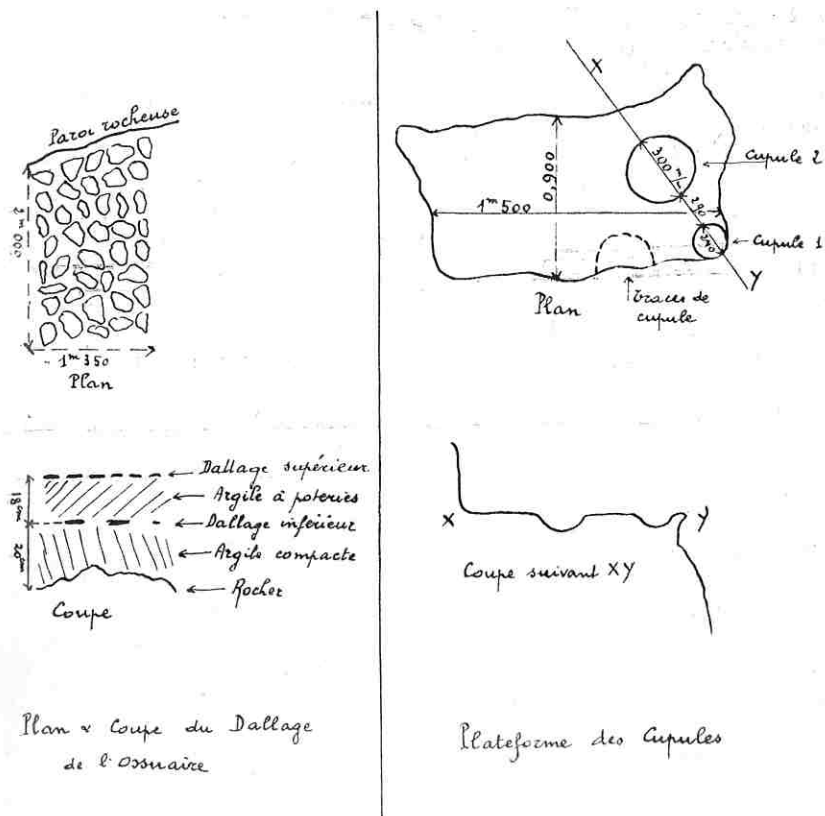 Paroi rocheuse
2 m 000
1 m 350
Plan
Dallage supérieur
Argile à poteries
Dallage inférieur
Argile compacte
Rocher
18 cm
20 cm
Coupe
Plan & Coupe du Dallage
de l'Ossuaire
X
Cupule 2
300 m/m
0,900
1 m 500
290
240
Cupule 1
Y
Traces de
cupule
Plan
X
Y
Coupe suivant XY
Plateforme des Cupules